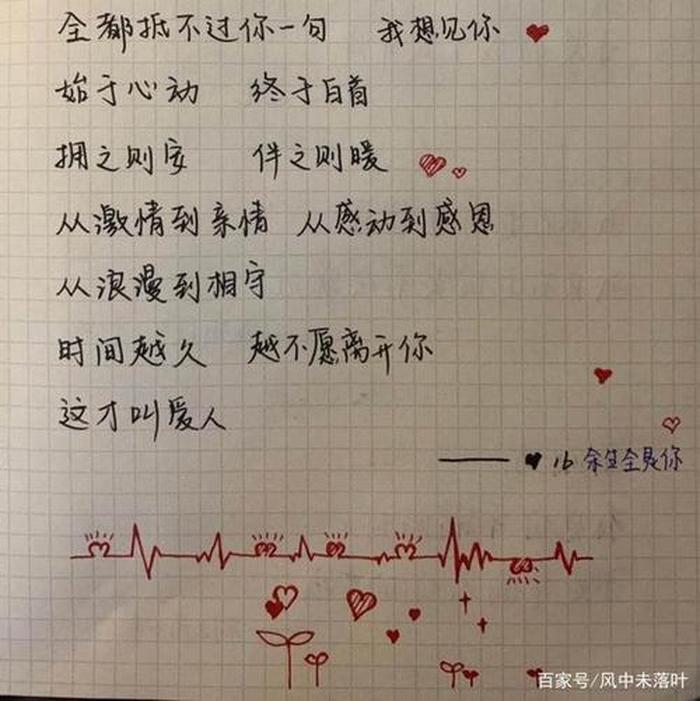 全都抵不过你一句 我想见你
始于心动 终于白首
拥之则安 伴之则暖
从激情到亲情 从感动到感恩
从浪漫到相守
时间越久 越不愿离开你
这才叫爱人
—— ♥ 16 余生全是你
百家号/风中未落叶